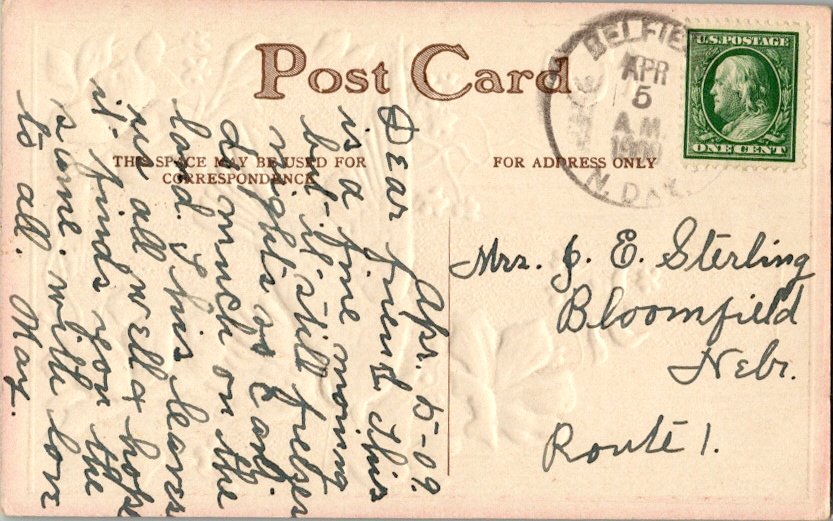 Post Card
THE SPACE MAY BE USED FOR
CORRESPONDENCE
FOR ADDRESS ONLY
BELFIE
APR
5
A.M.
1909
N. DAK.
U.S. POSTAGE
ONE CENT
Apr. 5-09.
Dear friend This
is a fine moning
but it still freezes
nights so
do much on the
land. This leaves
us all well & hope
it finds you the
same. with love
to all. May.
Mrs. J. E. Sterling
Bloomfield
Nebr.
Route 1.